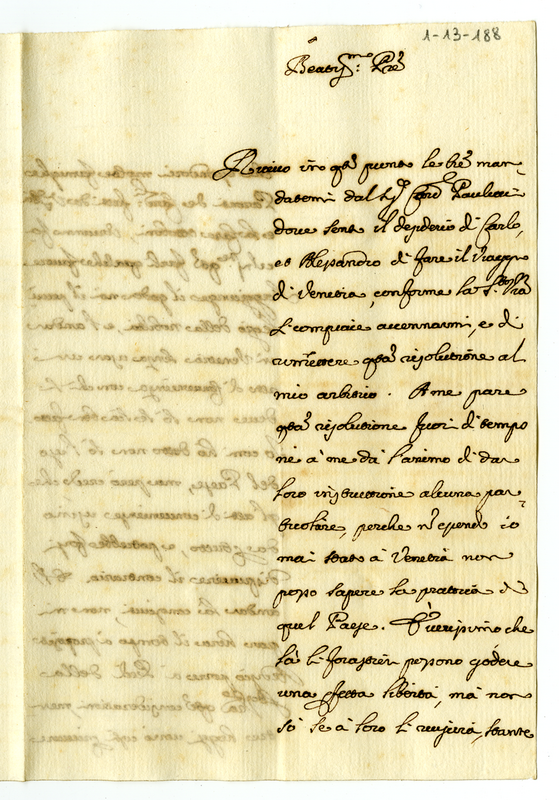 1-13-188
Beatiss.mo Pre
Ricevo in q.to punto le tre man-
datemi dal Sig.r Card. Paulucci
dove sento il desiderio di Carlo,
et Alessandro di fare il viaggio
di Venetia, conforme la S.tà V.ra
si compiace accennarmi, e di
rimettere q.ta risolutione al
mio arbitrio. A me pare
q.ta risolutione fuori di tempo
ne à me dà l'animo di dar
loro instruttione alcuna par-
ticolare, perche n. essendo io
mai stato à Venetia non
posso sapere la prattica di
quel Paese. È verissimo che
là li forastieri possono godere
una certa libertà, mà non
sò se à loro li riuscirà, stante